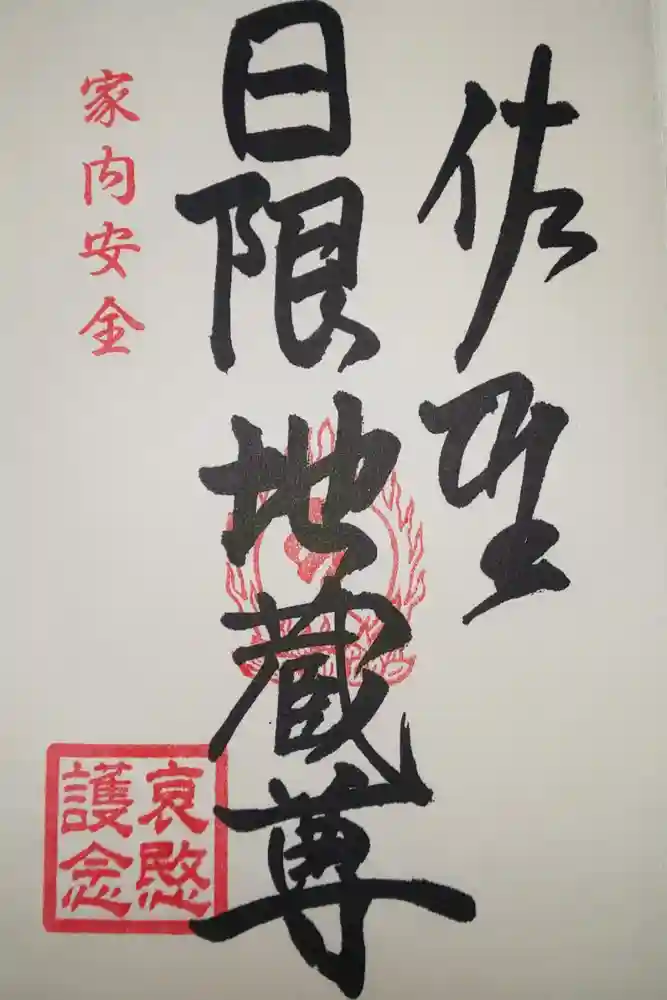 佐聖
日限地蔵尊
家内安全
哀愍
護念